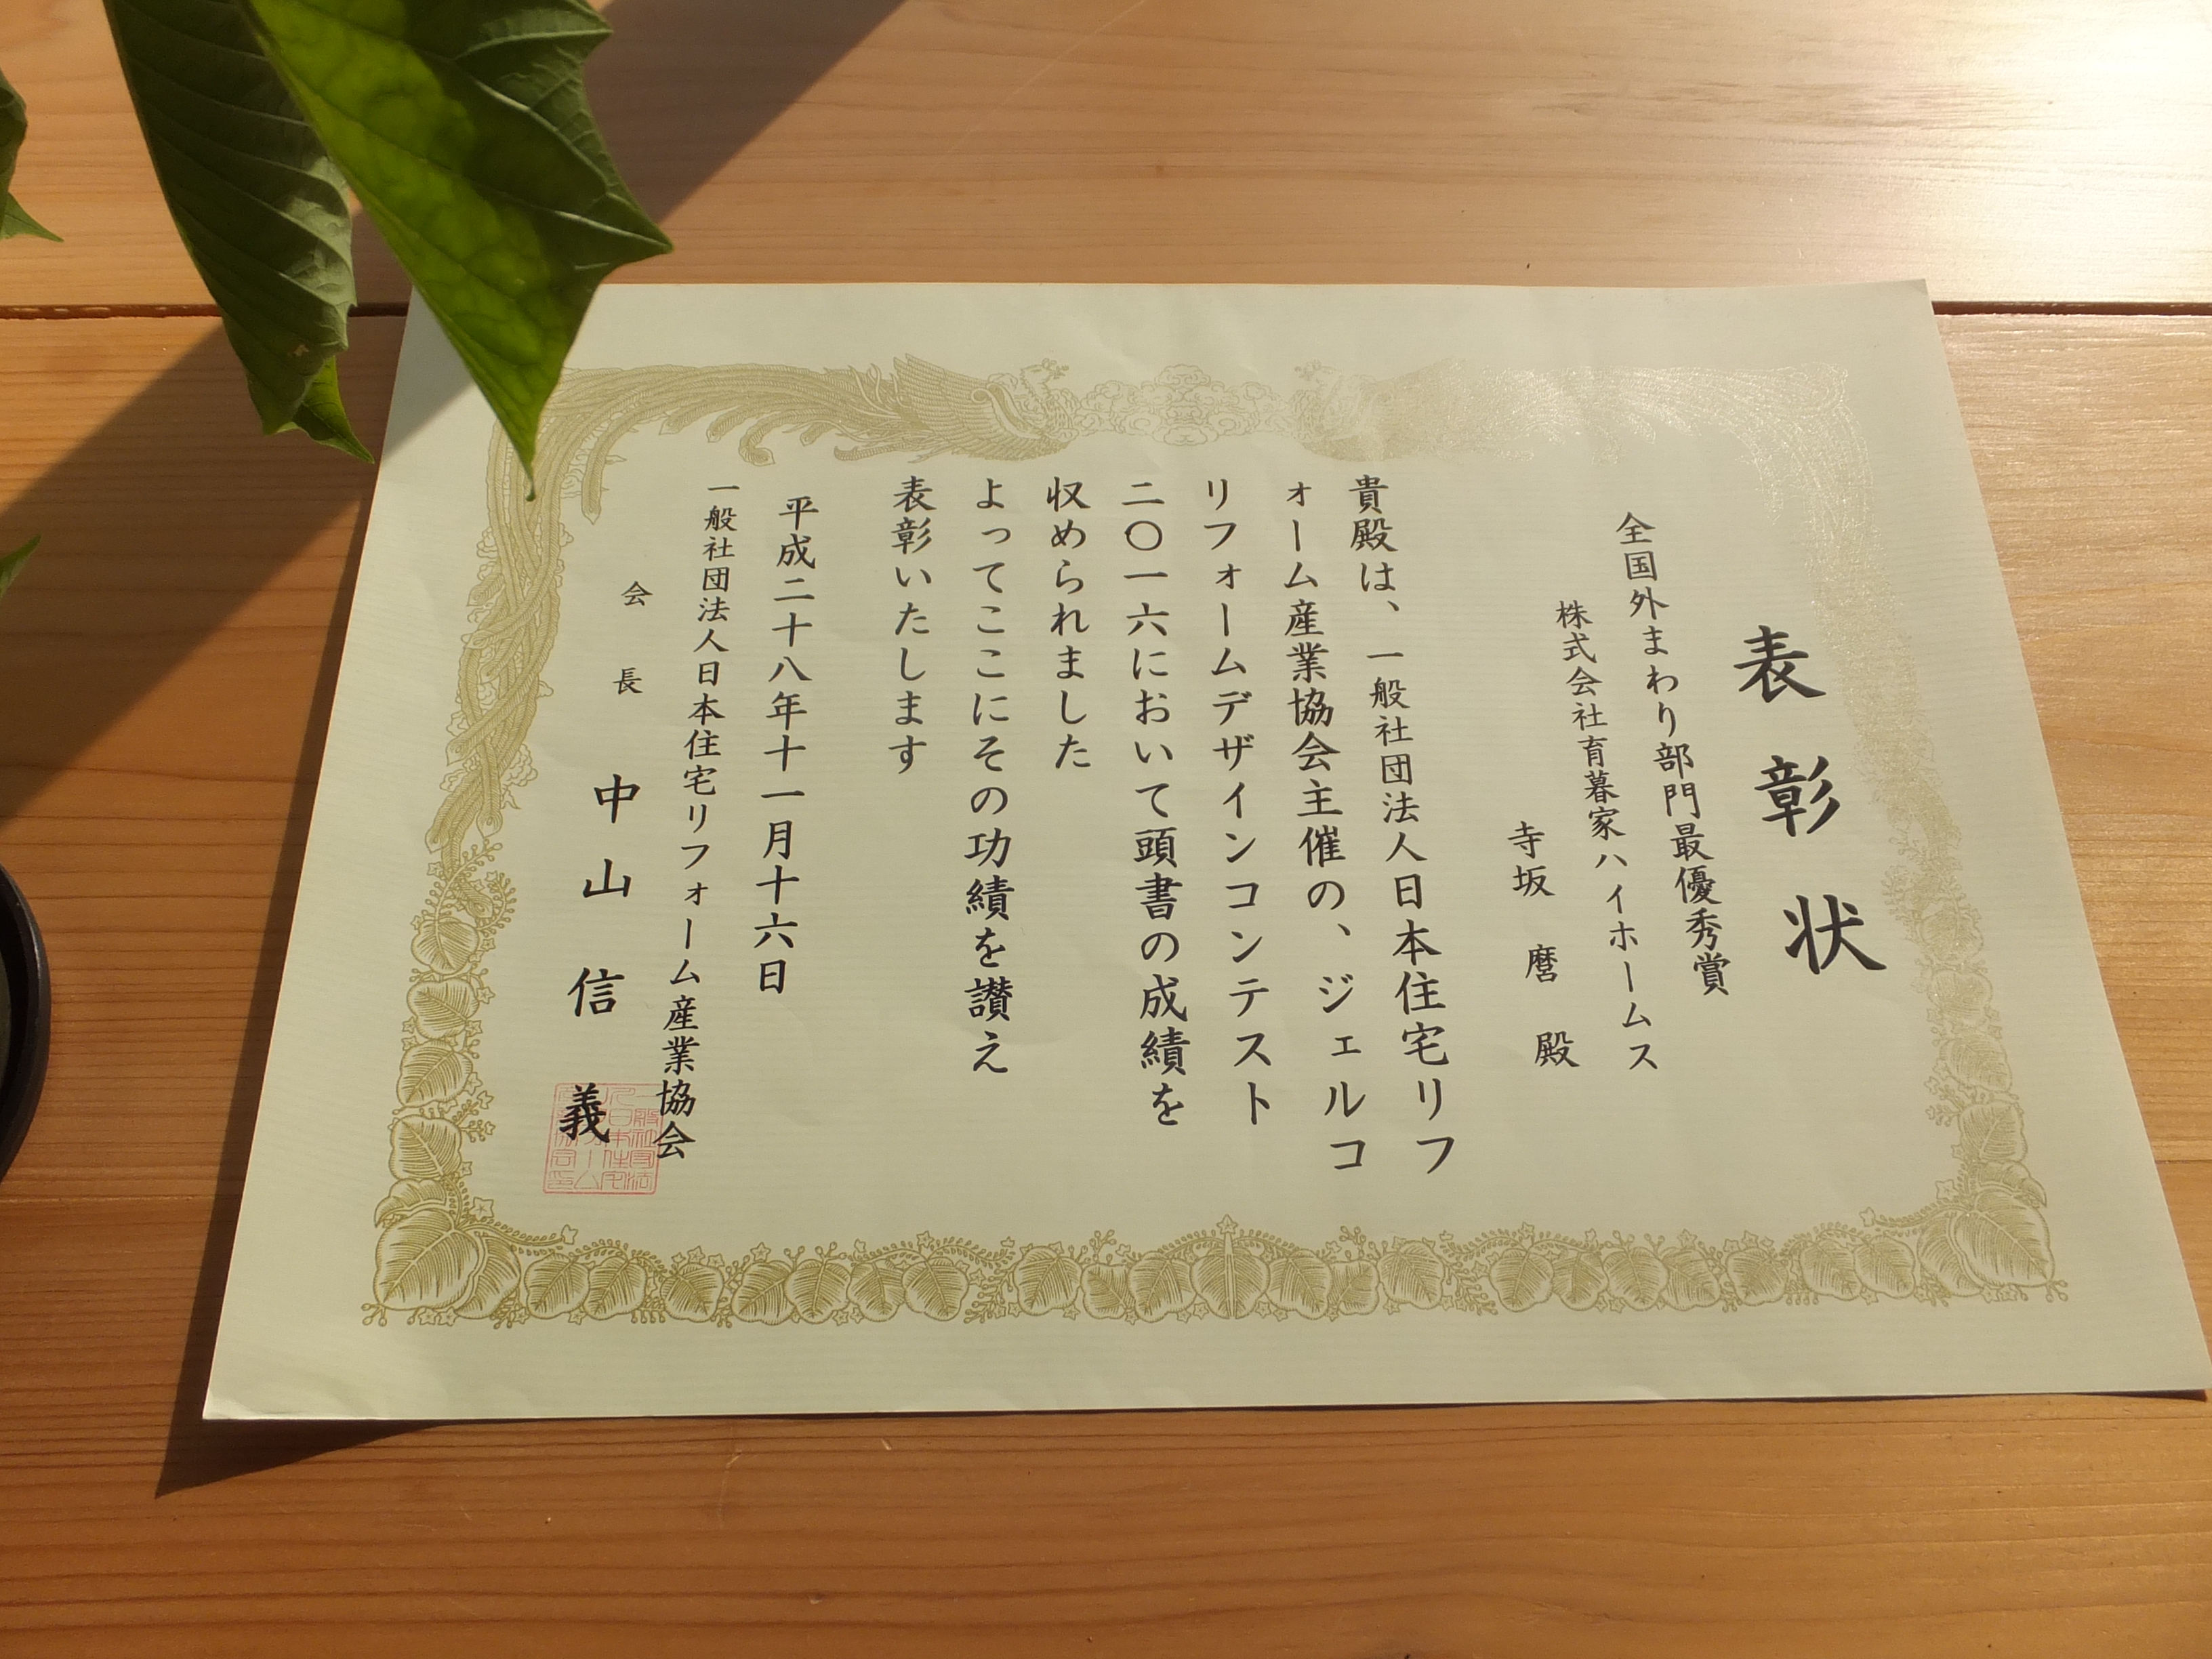 表彰状
全国外まわり部門最優秀賞
株式会社育暮家ハイホームス
寺坂 麿 殿
貴殿は、一般社団法人日本住宅リフ
ォーム産業協会主催の、ジェルコ
リフォームデザインコンテスト
二〇一六において頭書の成績を
収められました
よってここにその功績を讃え
表彰いたします
平成二十八年十一月十六日
一般社団法人日本住宅リフォーム産業協会
会長 中山信義